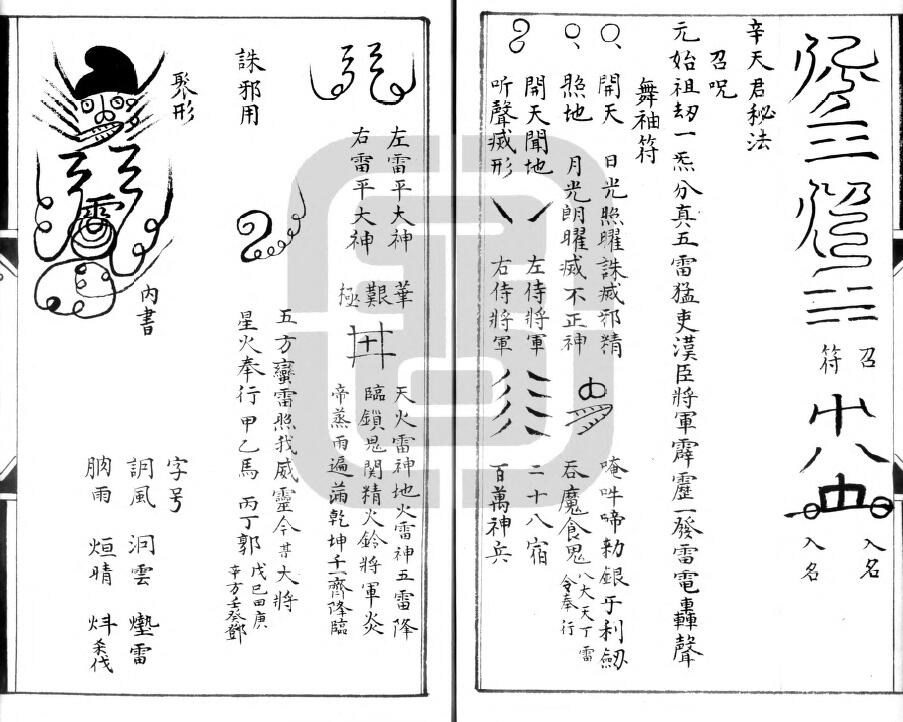 辛天君秘法
召符
入名
入名
召咒
元始祖劫一炁分真五雷猛吏漢臣將軍霹靂一發雷電轟聲
舞袖符
開天 日光照曜誅滅邪精 唵吽啼勑銀牙利劒
照地 月光朗曜滅不正神 吞魔食鬼 八大天丁雷令奉行
開天聞地 左侍將軍 二十八宿
听聲滅形 右侍將軍 百萬神兵
左雷平大神 華 天火雷神地火雷神五雷降
右雷平大神 艱 臨鎖鬼関精火鈴將軍炎
極 帝蒸雨遍滿乾坤千一齊降臨
誅邪用 五方蠻雷照我威靈今 大將
星火奉行 甲乙馬 丙丁郭 戊己田庚辛方壬癸鄧
聚形
內書
字号
風 洞雲 雷
雨 烜晴 殺伐